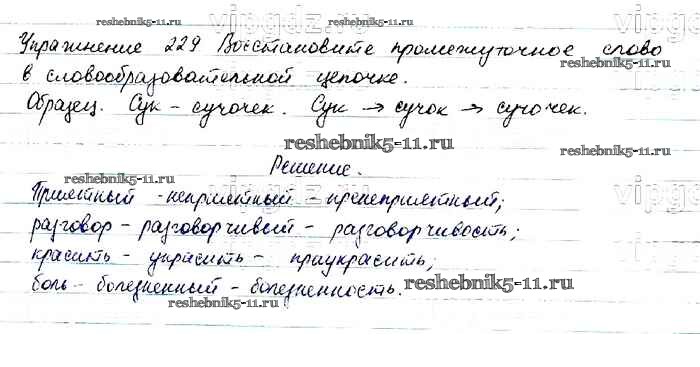 Упражнение 229 Восстановите промежуточное слово
в словообразовательной цепочке.
Образец. Сук - сучочек. Сук → сучок → сучочек.
Решение.
Приятный - неприятный - пренеприятный;
разговор - разговорчивый - разговорчивость;
красить - украсить - приукрасить;
боль - болезненный - болезненность.
reshebnik5-11.ru
reshebnik5-11.ru
reshebnik5-11.ru
reshebnik5-11.ru
reshebnik5-11.ru
reshebnik5-11.ru
reshebnik5-11.ru
vipgdz.ru